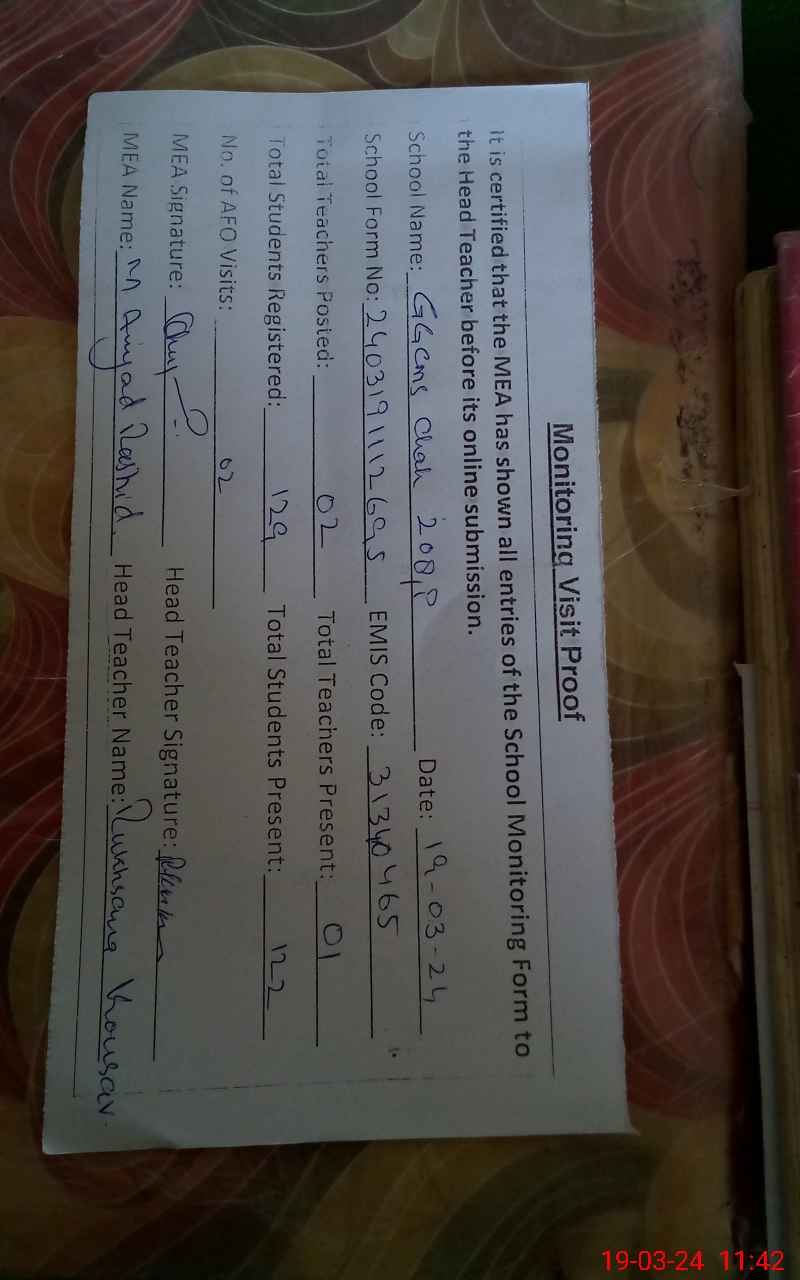 Monitoring Visit Proof
It is certified that the MEA has shown all entries of the School Monitoring Form to
the Head Teacher before its online submission.
School Name: GGCMS Chak 208/P Date: 19-03-24
School Form No: 24031911126995 EMIS Code: 31340465
Total Teachers Posted: 02 Total Teachers Present: 01
Total Students Registered: 129 Total Students Present: 122
No. of AFO Visits: 02
MEA Signature: Head Teacher Signature:
MEA Name: M Amjad Rashid. Head Teacher Name: Rukhsana Kousar
19-03-24 11:42